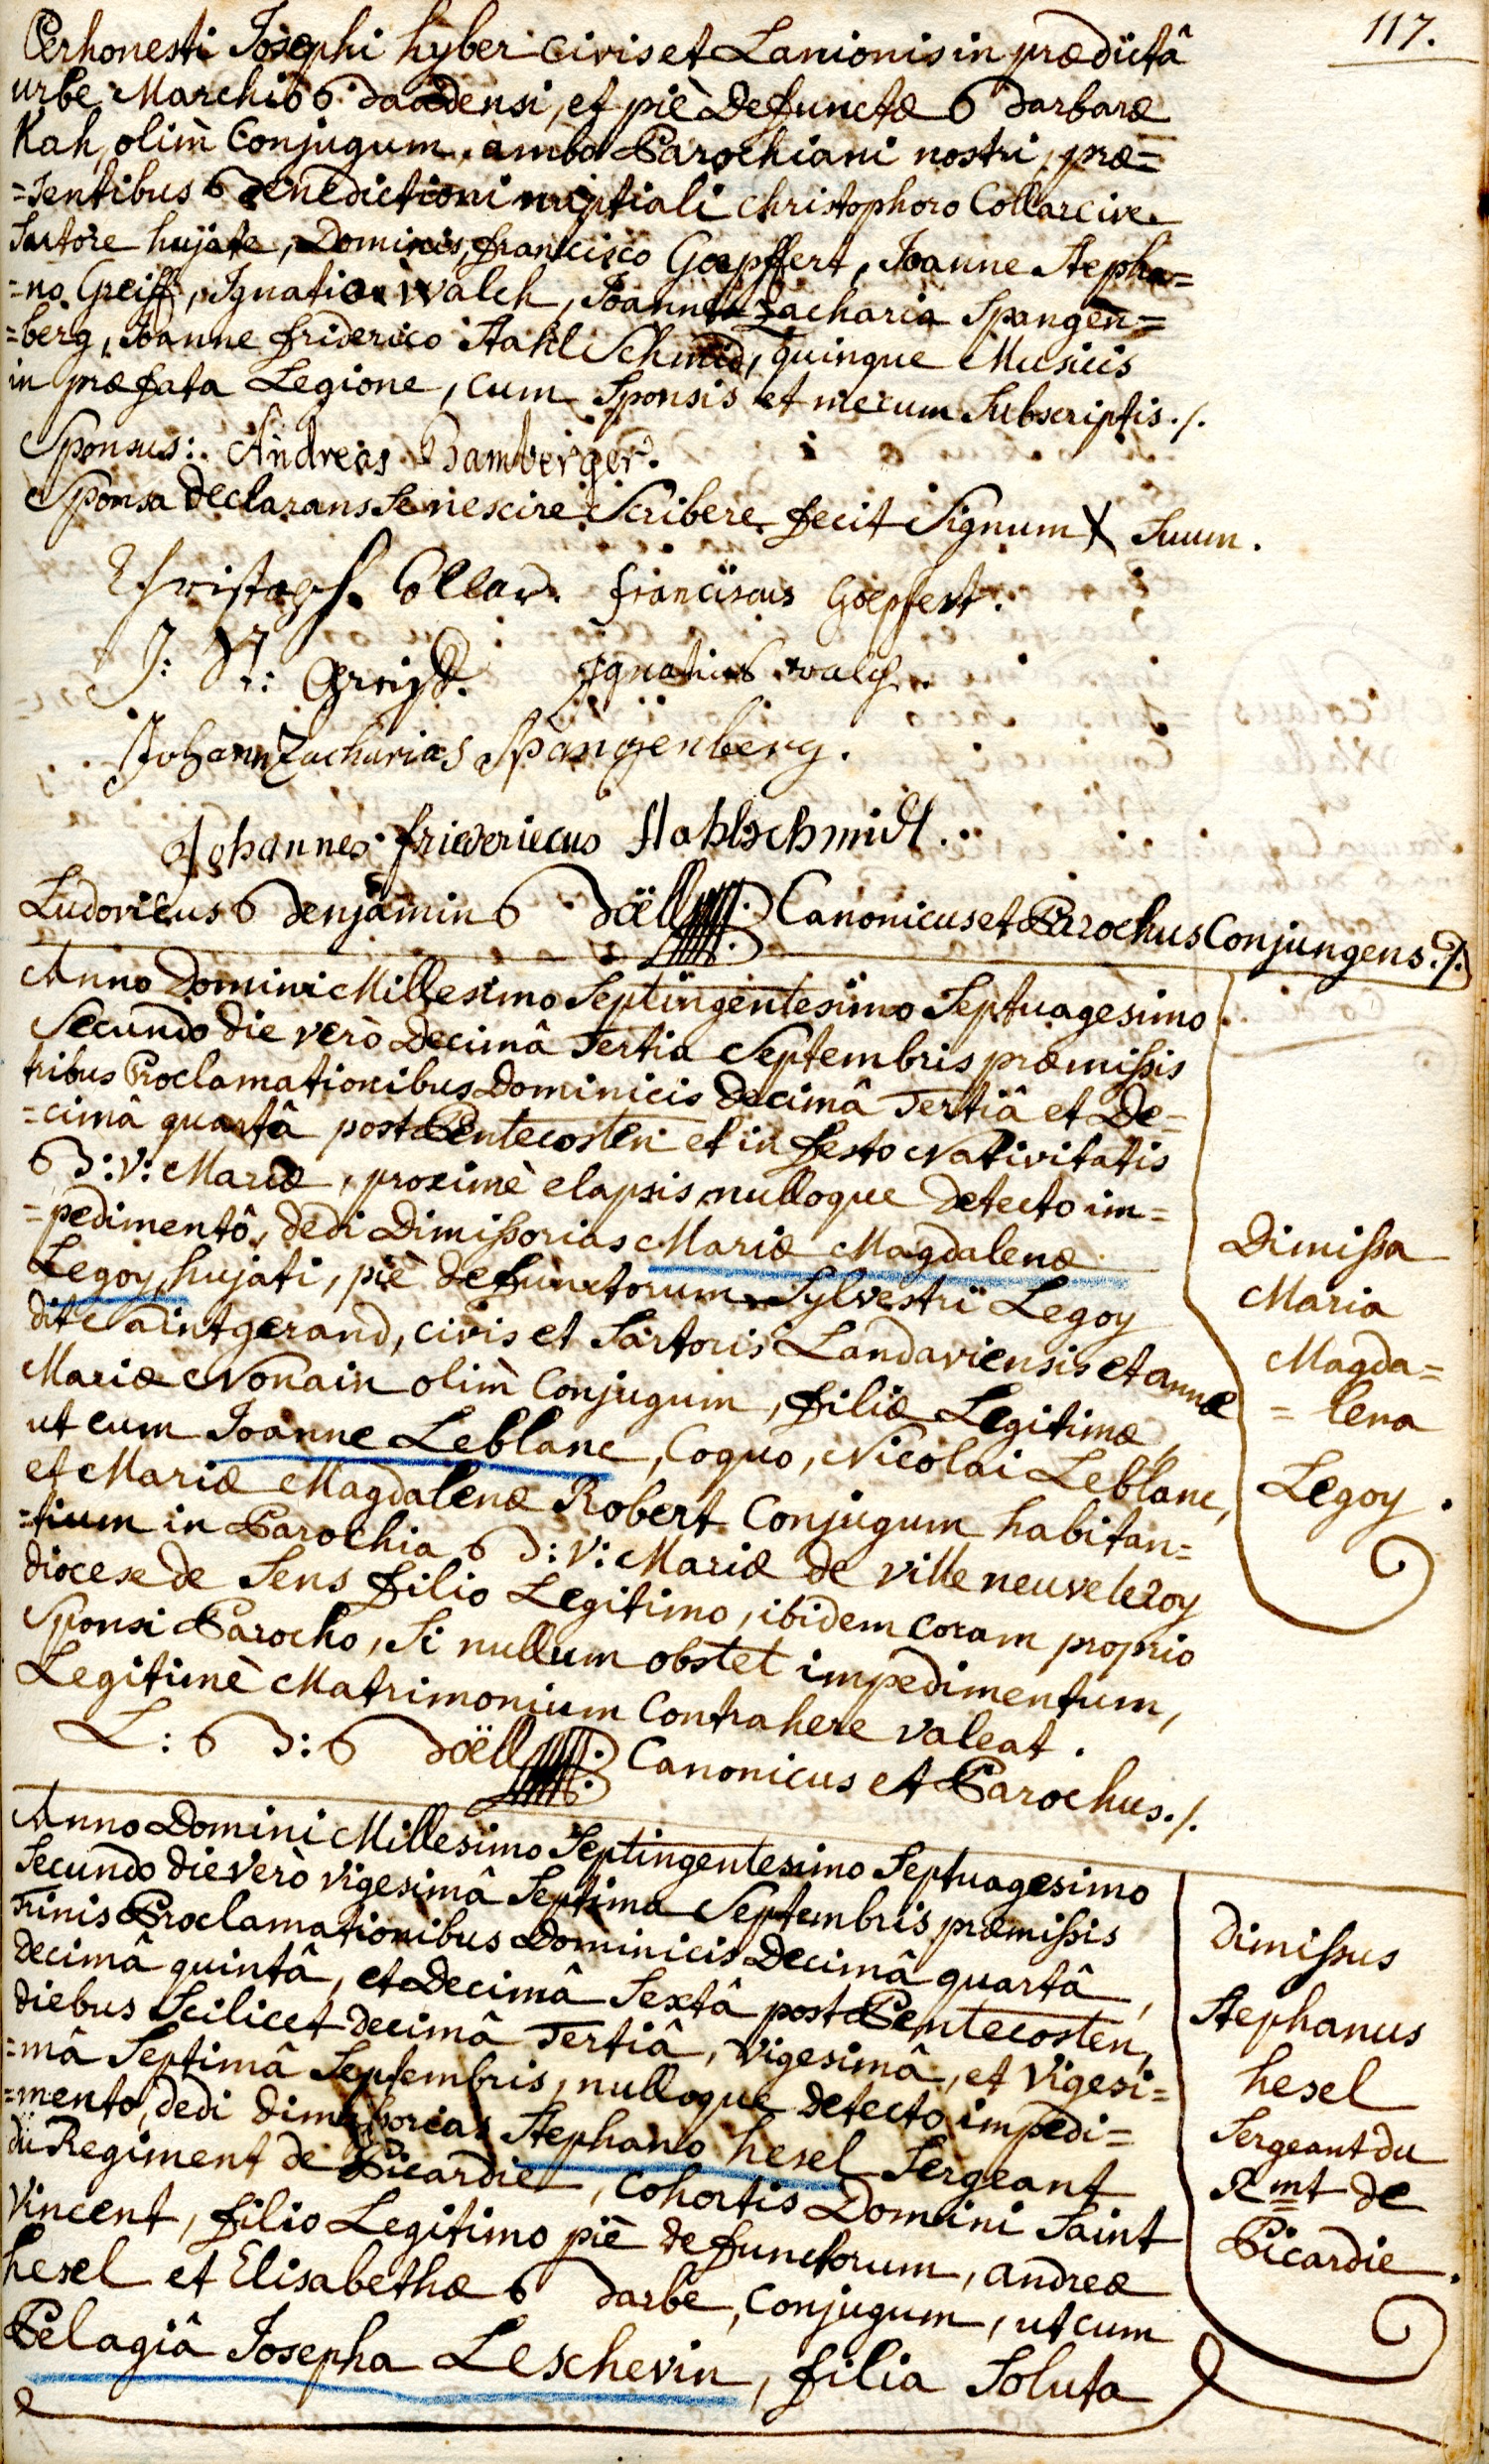 117.
Perhonesti Josephi hyber civis et Lanionis in prædictâ
urbe Marchio Baadensi, et piè Defunctæ Barbaræ
Kah, olim̀ Conjugum, ambo Parochiani nostri, præ=
=sentibus Benedictioni nuptiali christophoro Collar cive
Sartore hujate, Dominis, francisco Goepffert, Joanne Stepha=
=no Greiff, Ignatio Walch, Joanne Zacharia Spangen=
=berg, Joanne friderico StahlSchmid, quinque Musicis
in præfata Legione, cum Sponsis et mecum Subscriptis./.
Sponsus: Andreas Bamberger.
Sponsa declarans Se nescire Scribere fecit Signum X Suum.
Christoph Collar. franciscus Goepfert.
J: St: Greiff. Ignatius walch.
Johann Zacharias Spangenberg.
Johannes friederiecus Stahlschmidt.
Ludovicus Benjamin Boëll Canonicus et Parochus Conjungens./.
Anno Domini Millesimo Septingentesimo Septuagesimo
Secundo die verò Decimâ Tertia Septembris præmissis
tribus Proclamationibus Dominicis Decimâ Tertiâ et De=
=cimâ quartâ post Pentecosten et in festo Nativitatis
B: V: Mariæ, proximè elapsis, nulloque Detecto im=
=pedimentô, dedi Dimissorias Mariæ Magdalenæ
Legoy, hujati, piè defunctorum Sylvestri Legoy
dit Saintgerand, civis et Sartoris Landaviensis et annæ
Mariæ Nonain olim̀ Conjugum, filiæ Legitimæ,
ut cum Joanne Leblanc, Coquo, Nicolai Leblanc,
et Mariæ Magdalenæ Robert Conjugum habitan=
=tium in Parochia B: V: Mariæ de ville neuve le roy
diocese de Sens filio Legitimo, ibidem coram proprio
Sponsi Parocho, Si nullum obstet impedimentum,
Legitimè Matrimonium Contrahere valeat.
L: B: Boëll Canonicus et Parochus./.
Dimissa
Maria
Magda=
=lena
Legoy.
Anno Domini Millesimo Septingentesimo Septuagesimo
Secundo die verò vigesimâ Septima Septembris præmissis
Trinis Proclamationibus Dominicis Decimâ quartâ,
decimâ quintâ, et Decimâ Sextâ post Pentecosten,
diebus Scilicet decimâ Tertiâ, Vigesimâ, et Vigesi=
=mâ Septimâ Septembris, nulloque detecto impedi=
=mento, dedi dimissorias Stephano hesel Sergeant
du Regiment de Picardie, Cohortis Domini Saint
Vincent, filio Legitimo piè defunctorum, andreæ
hesel et Elisabethæ Barbe, Conjugum, ut cum
Pelagiâ Josepha Leschevin, filia Soluta
Dimissus
Stephanus
hesel
Sergeant du
Rmt de
Picardie.